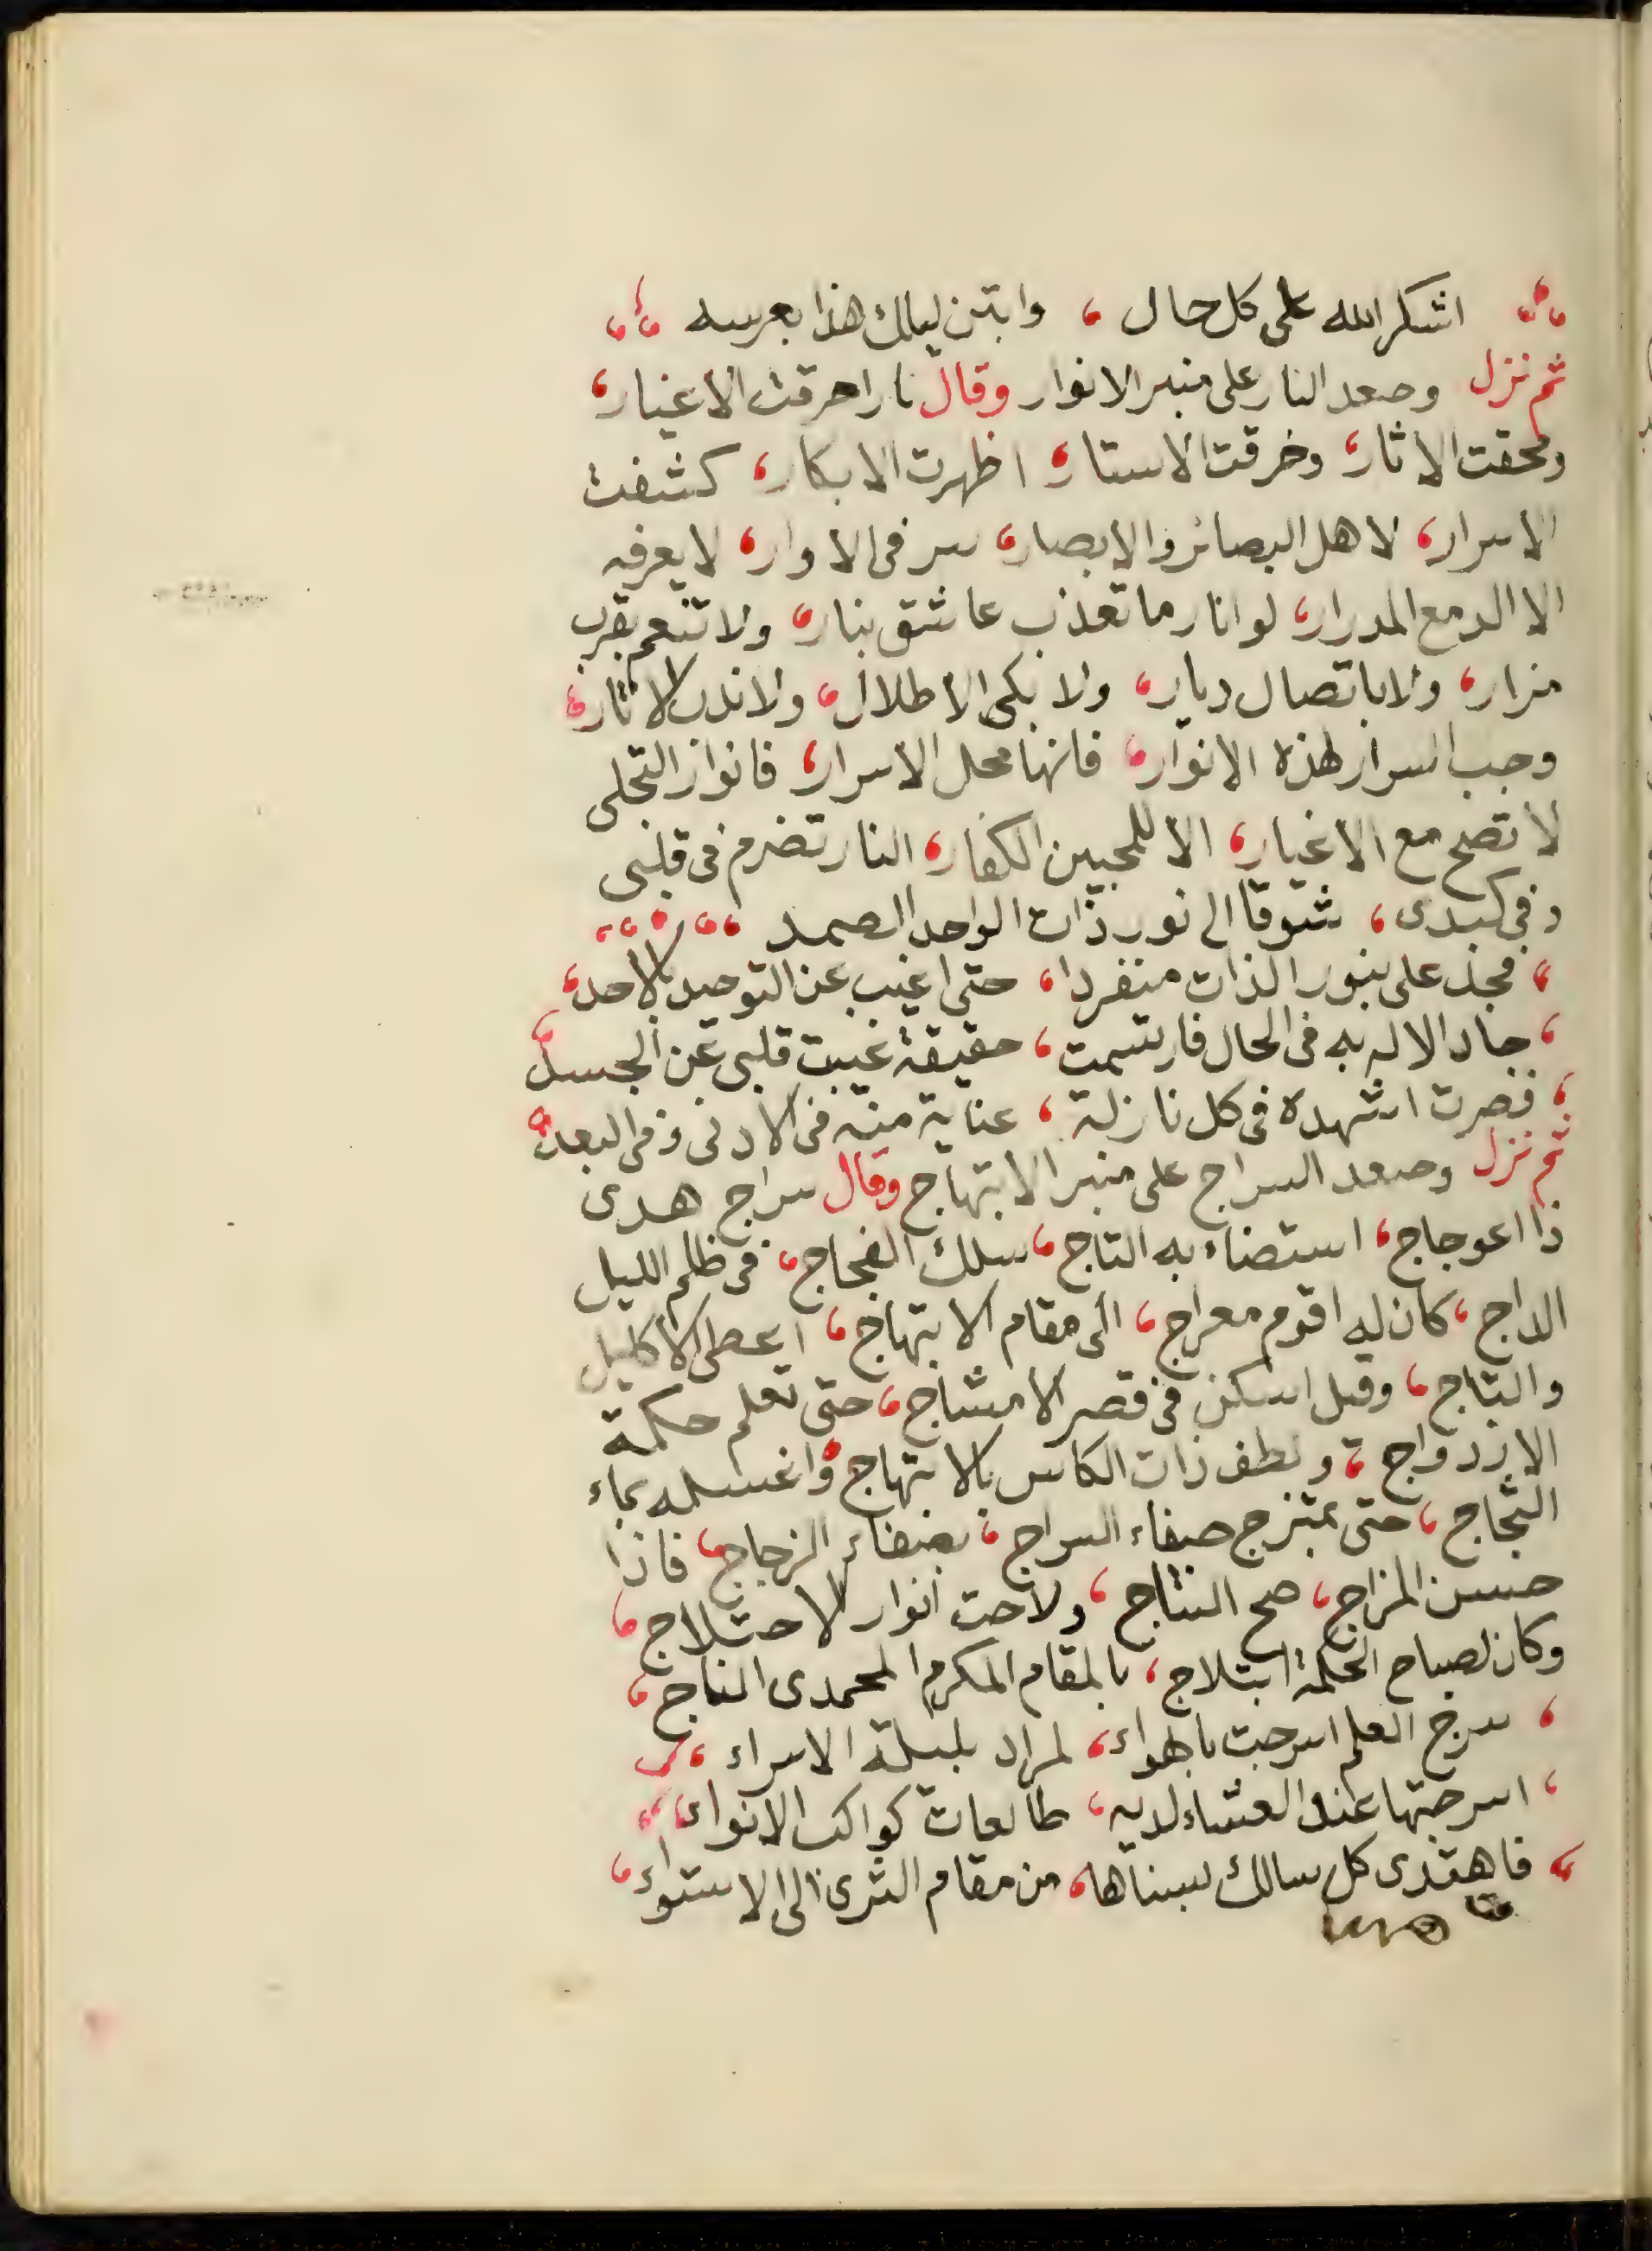 اشكر الله على كل حال ، وابتن ليلك هذا بعرسه
ثم نزل وصعد النار على منبر الانوار وقال نار احرقت الاغيار،
ومحقت الاثار، وخرقت الاستار، اظهرت الابكار، كشفت
الاسرار، لاهل البصائر والابصار، سر في الاوار، لا يعرفه
الا الدمع المدرار، لو انار ما تعذب عاشق بنار، ولا تنعم بقرب
مزار، ولا باتصال ديار، ولا بكى الاطلال، ولا ندب الاثار،
وجب السرار لهذه الانوار، فانها محل الاسرار، فانوار التجلى
لا تصح مع الاغيار، الا للمحبين الكفار، النار تضرم في قلبى
وفي كبدى ، شوقا الى نور ذات الواحد الصمد
، فجد على بنور الذات منفردا ، حتى اغيب عن التوحيد بالاحد،
، جاد الاله به في الحال فارتسمت ، حقيقة غيبت قلبى عن الجسد
، فصرت اشهده في كل نازلة ، عناية منه في الادنى وفي البعد،
ثم نزل وصعد السراج على منبر الابتهاج وقال سراج هدى
ذا اعوجاج، استضاء به التاج، سلك الفجاج، في ظلم الليل
الداج، كان له اقوم معراج، الى مقام الابتهاج، اعطى الاكليل
والتاج، وقيل اسكن في قصر الامشاج، حتى تعلم حكمة
الازدواج، ونظف ذات الكاس بالابتهاج، واغسله بماء
الثجاج، حتى يمتزج صفاء السراج، بصفاء الزجاج، فاذا
حسن المزاج، صح النتاج، ولاحت انوار الاختلاج،
وكان لصباح الحكمة ابتلاج، بالمقام المكرم المحمدى الناج،
، سرج العلم اسرجت بالهواء، لمراد بليلة الاسراء ،
، اسرجتها عند العشاء لديه، طالعات كواكب الانواء،
، فاهتدى كل سالك بسناها، من مقام الثرى الى الاستواء،